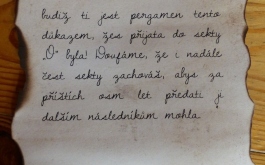 budiž ti jest pergamen tento
důkazem, žes přijata do sekty
„O" byla! Doufáme, že i nadále
čest sekty zachováš, abys za
příštích osm let předati ji
dalším následníkům mohla.